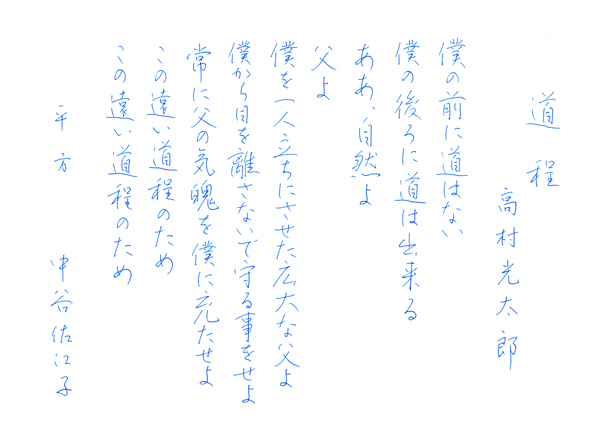 道程
高村光太郎
僕の前に道はない
僕の後ろに道は出来る
ああ、自然よ
父よ
僕を一人立ちにさせた広大な父よ
僕から目を離さないで守る事をせよ
常に父の気魄を僕に充たせよ
この遠い道程のため
この遠い道程のため
平方
中谷佐江子